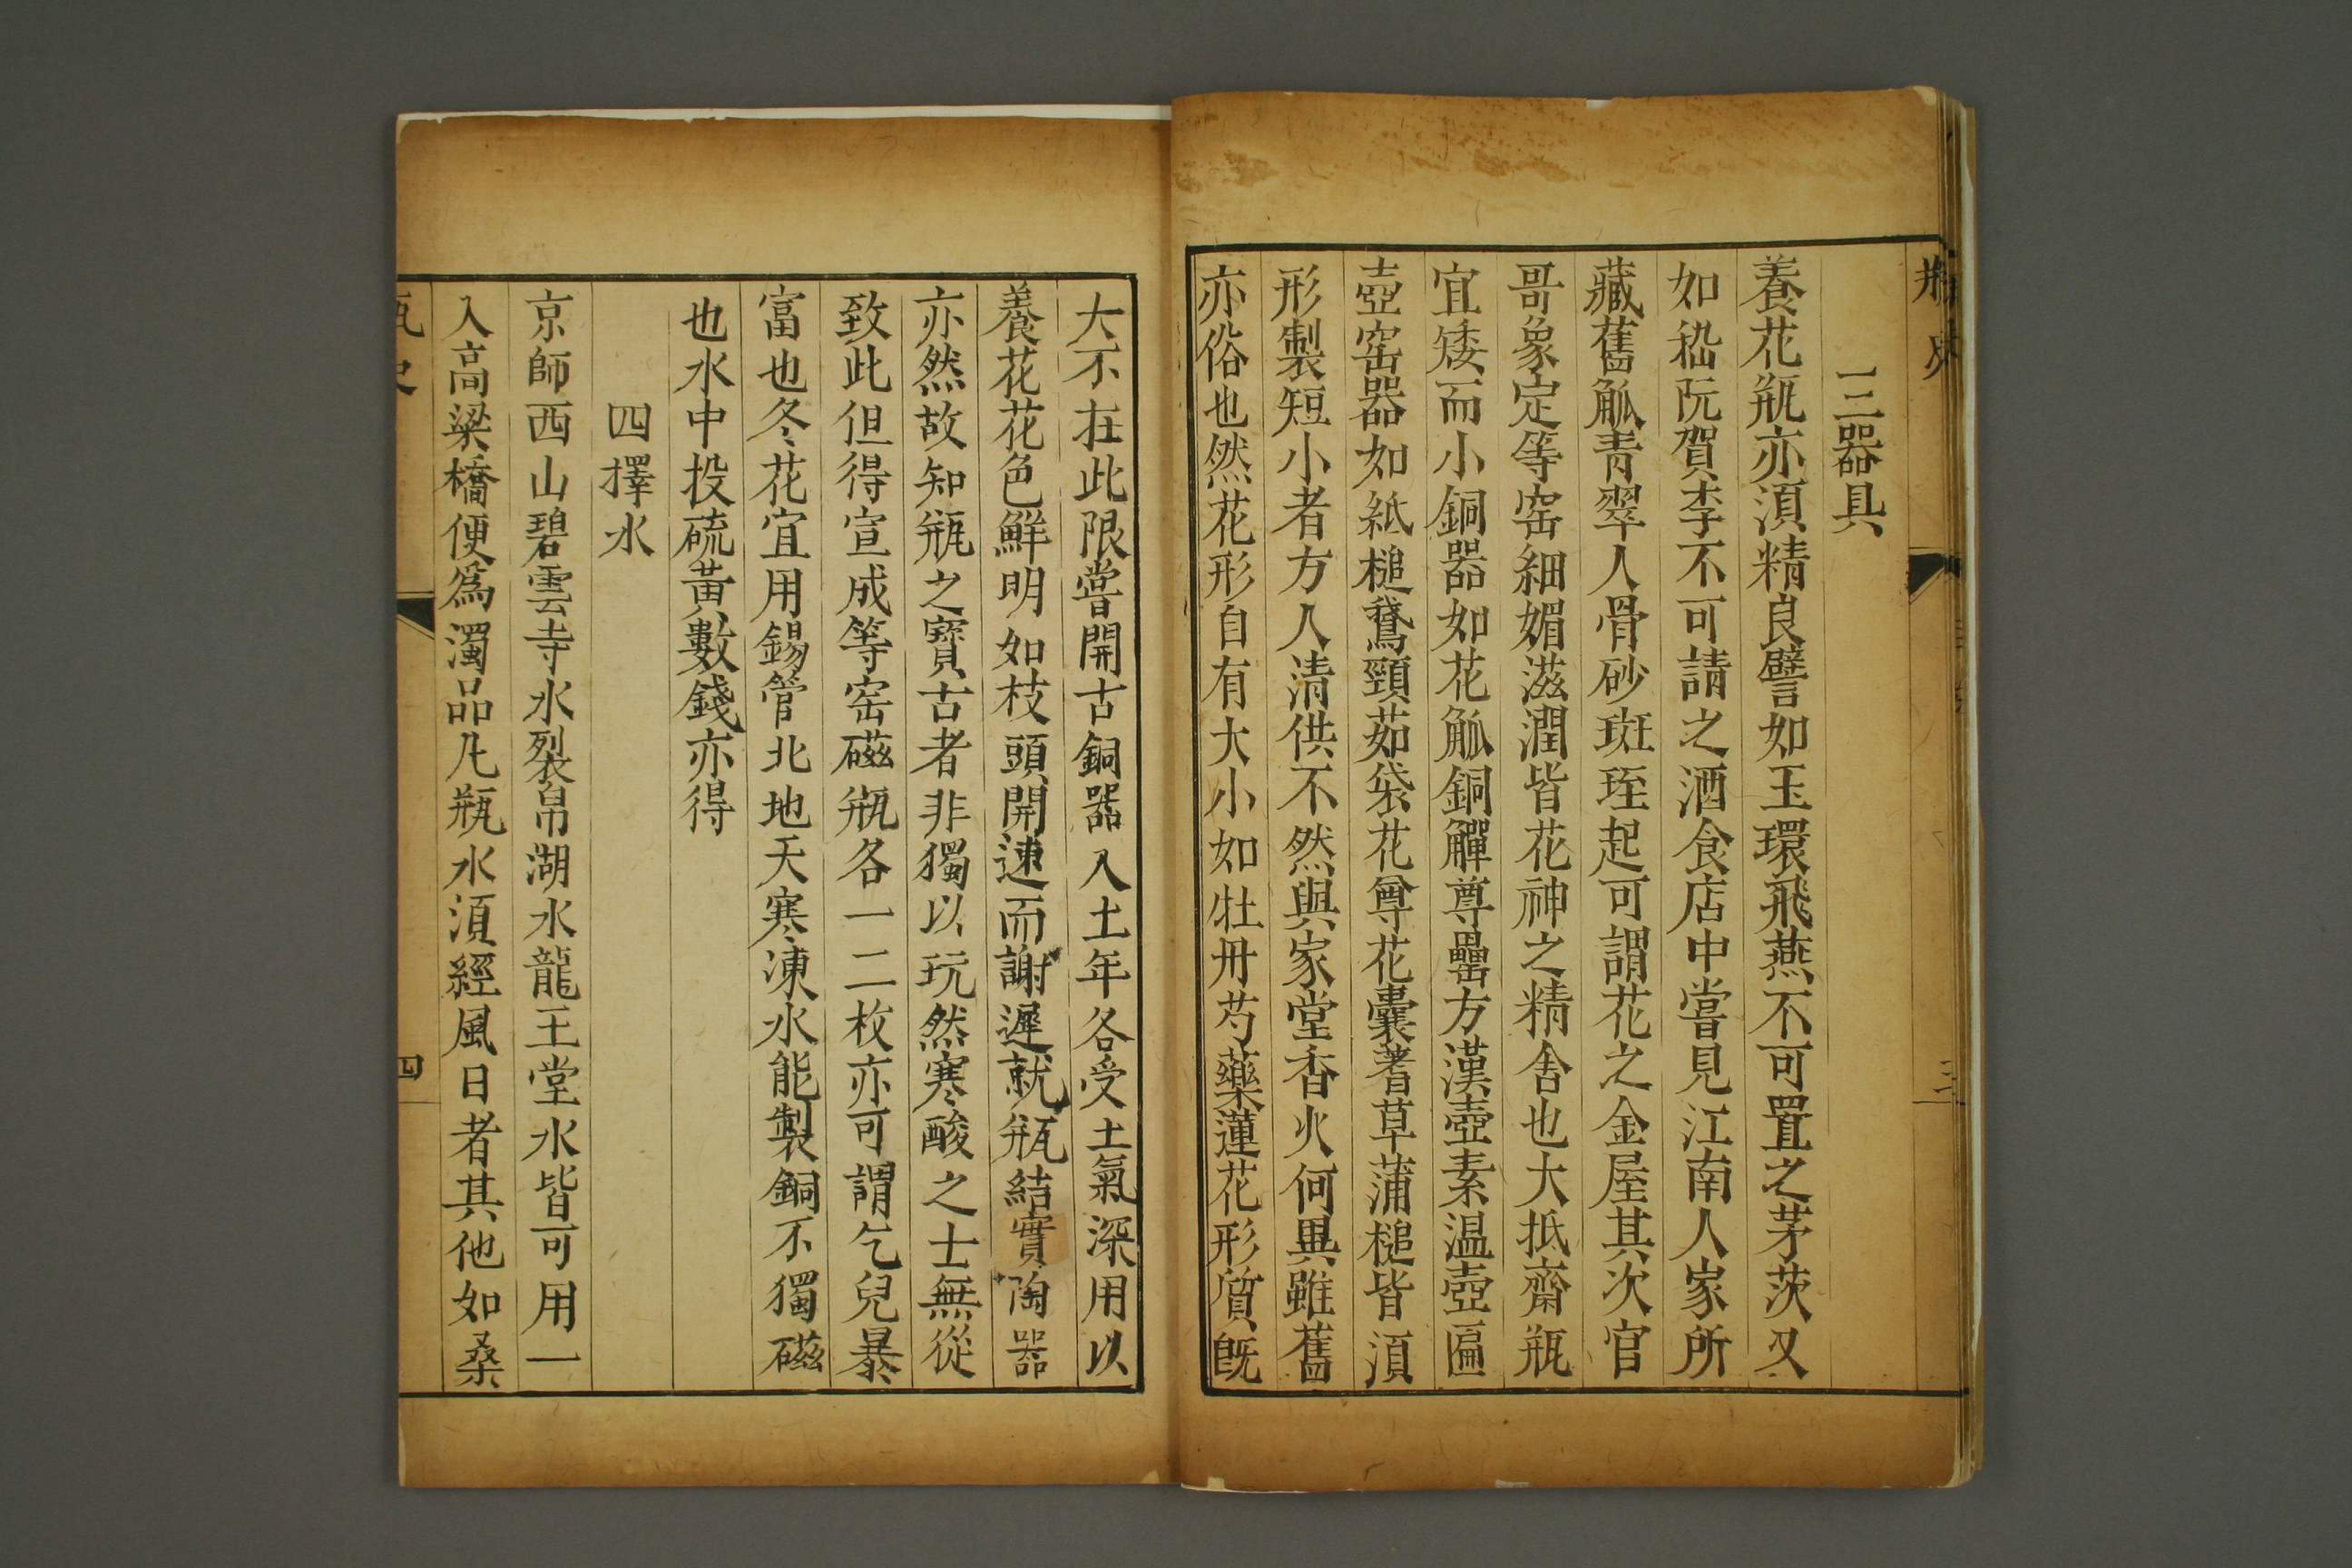 三器具
養花瓶亦須精良譬如玉環飛燕不可置之茅茨又
如嵇阮賀李不可請之酒食店中嘗見江南人家所
藏舊觚青翠入骨砂斑垤起可謂花之金屋其次官
哥象定等窑細媚滋潤皆花神之精舍也大抵齋瓶
宜矮而小銅器如花觚銅觶尊罍方漢壺素温壺匾
壺窑器如紙槌鵞頸茹袋花尊花囊蓍草蒲槌皆須
形製短小者方入清供不然與家堂香火何異雖舊
亦俗也然花形自有大小如牡丹芍藥蓮花形質旣
大不在此限嘗聞古銅器入土年各受土氣深用以
養花花色鮮明如枝頭開速而謝遲就瓶結實陶器
亦然故知瓶之寳古者非獨以玩然寒酸之士無從
致此但得宣成等窑磁瓶各一二枚亦可謂乞兒暴
富也冬花宜用錫管北地天寒凍水能製銅不獨磁
也水中投硫黃數錢亦得
四擇水
京師西山碧雲寺水裂帛湖水龍王堂水皆可用一
入高梁橋便爲濁品凡瓶水須經風日者其他如桑
四